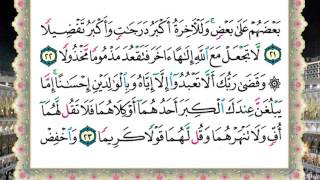 بَعۡضَهُمۡ عَلَىٰ بَعۡضٖۚ وَلَلۡأٓخِرَةُ أَكۡبَرُ دَرَجَٰتٖ وَأَكۡبَرُ تَفۡضِيلٗا
٢١ لَّا تَجۡعَلۡ مَعَ ٱللَّهِ إِلَٰهًا ءَاخَرَ فَتَقۡعُدَ مَذۡمُومٗا مَّخۡذُولٗا ٢٢
۞ وَقَضَىٰ رَبُّكَ أَلَّا تَعۡبُدُوٓاْ إِلَّآ إِيَّاهُ وَبِٱلۡوَٰلِدَيۡنِ إِحۡسَٰنًاۚ إِمَّا
يَبۡلُغَنَّ عِندَكَ ٱلۡكِبَرَ أَحَدُهُمَآ أَوۡ كِلَاهُمَا فَلَا تَقُل لَّهُمَآ
أُفّٖ وَلَا تَنۡهَرۡهُمَا وَقُل لَّهُمَا قَوۡلٗا كَرِيمٗا ٢٣ وَٱخۡفِضۡ